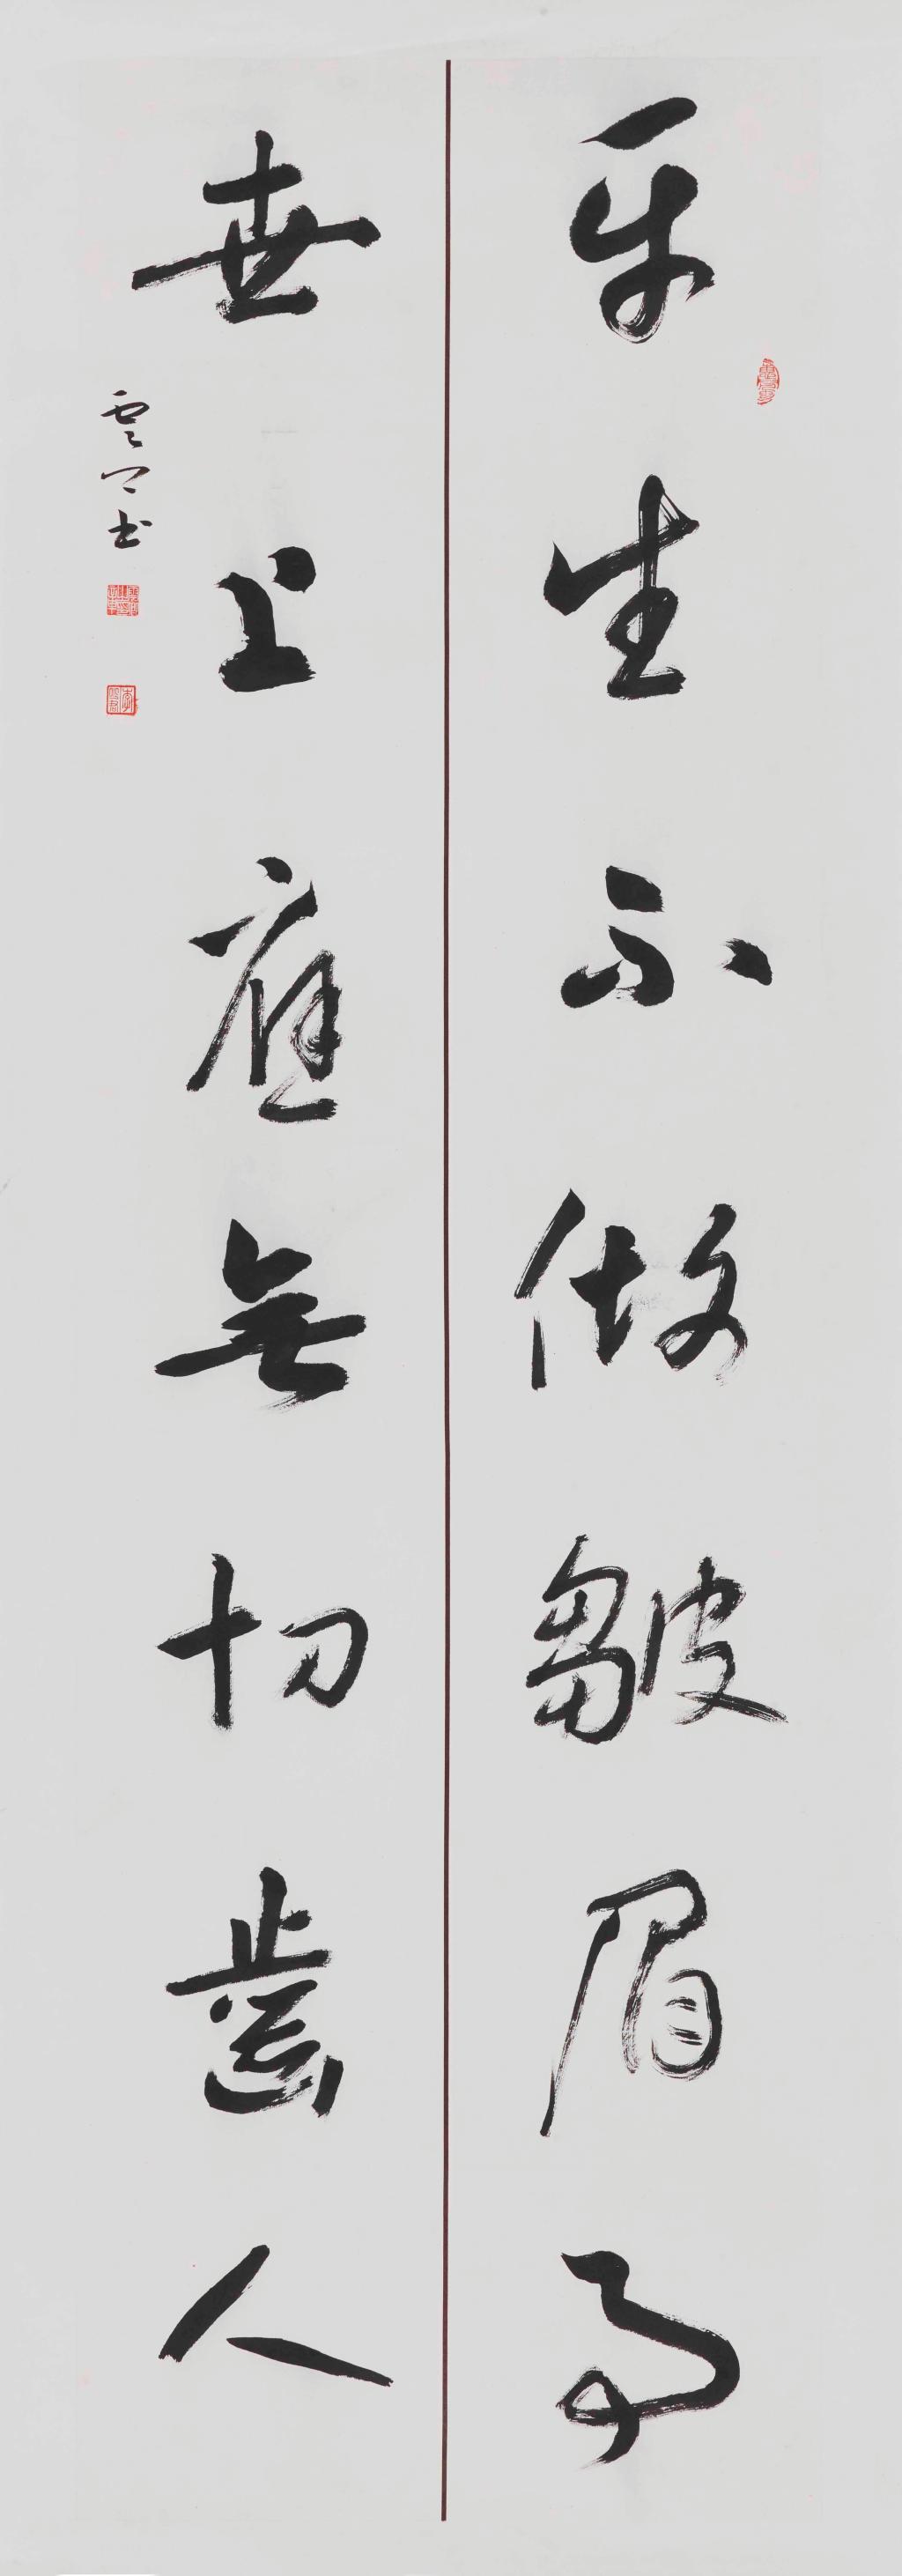 平生不做皺眉事
世上應無切齒人